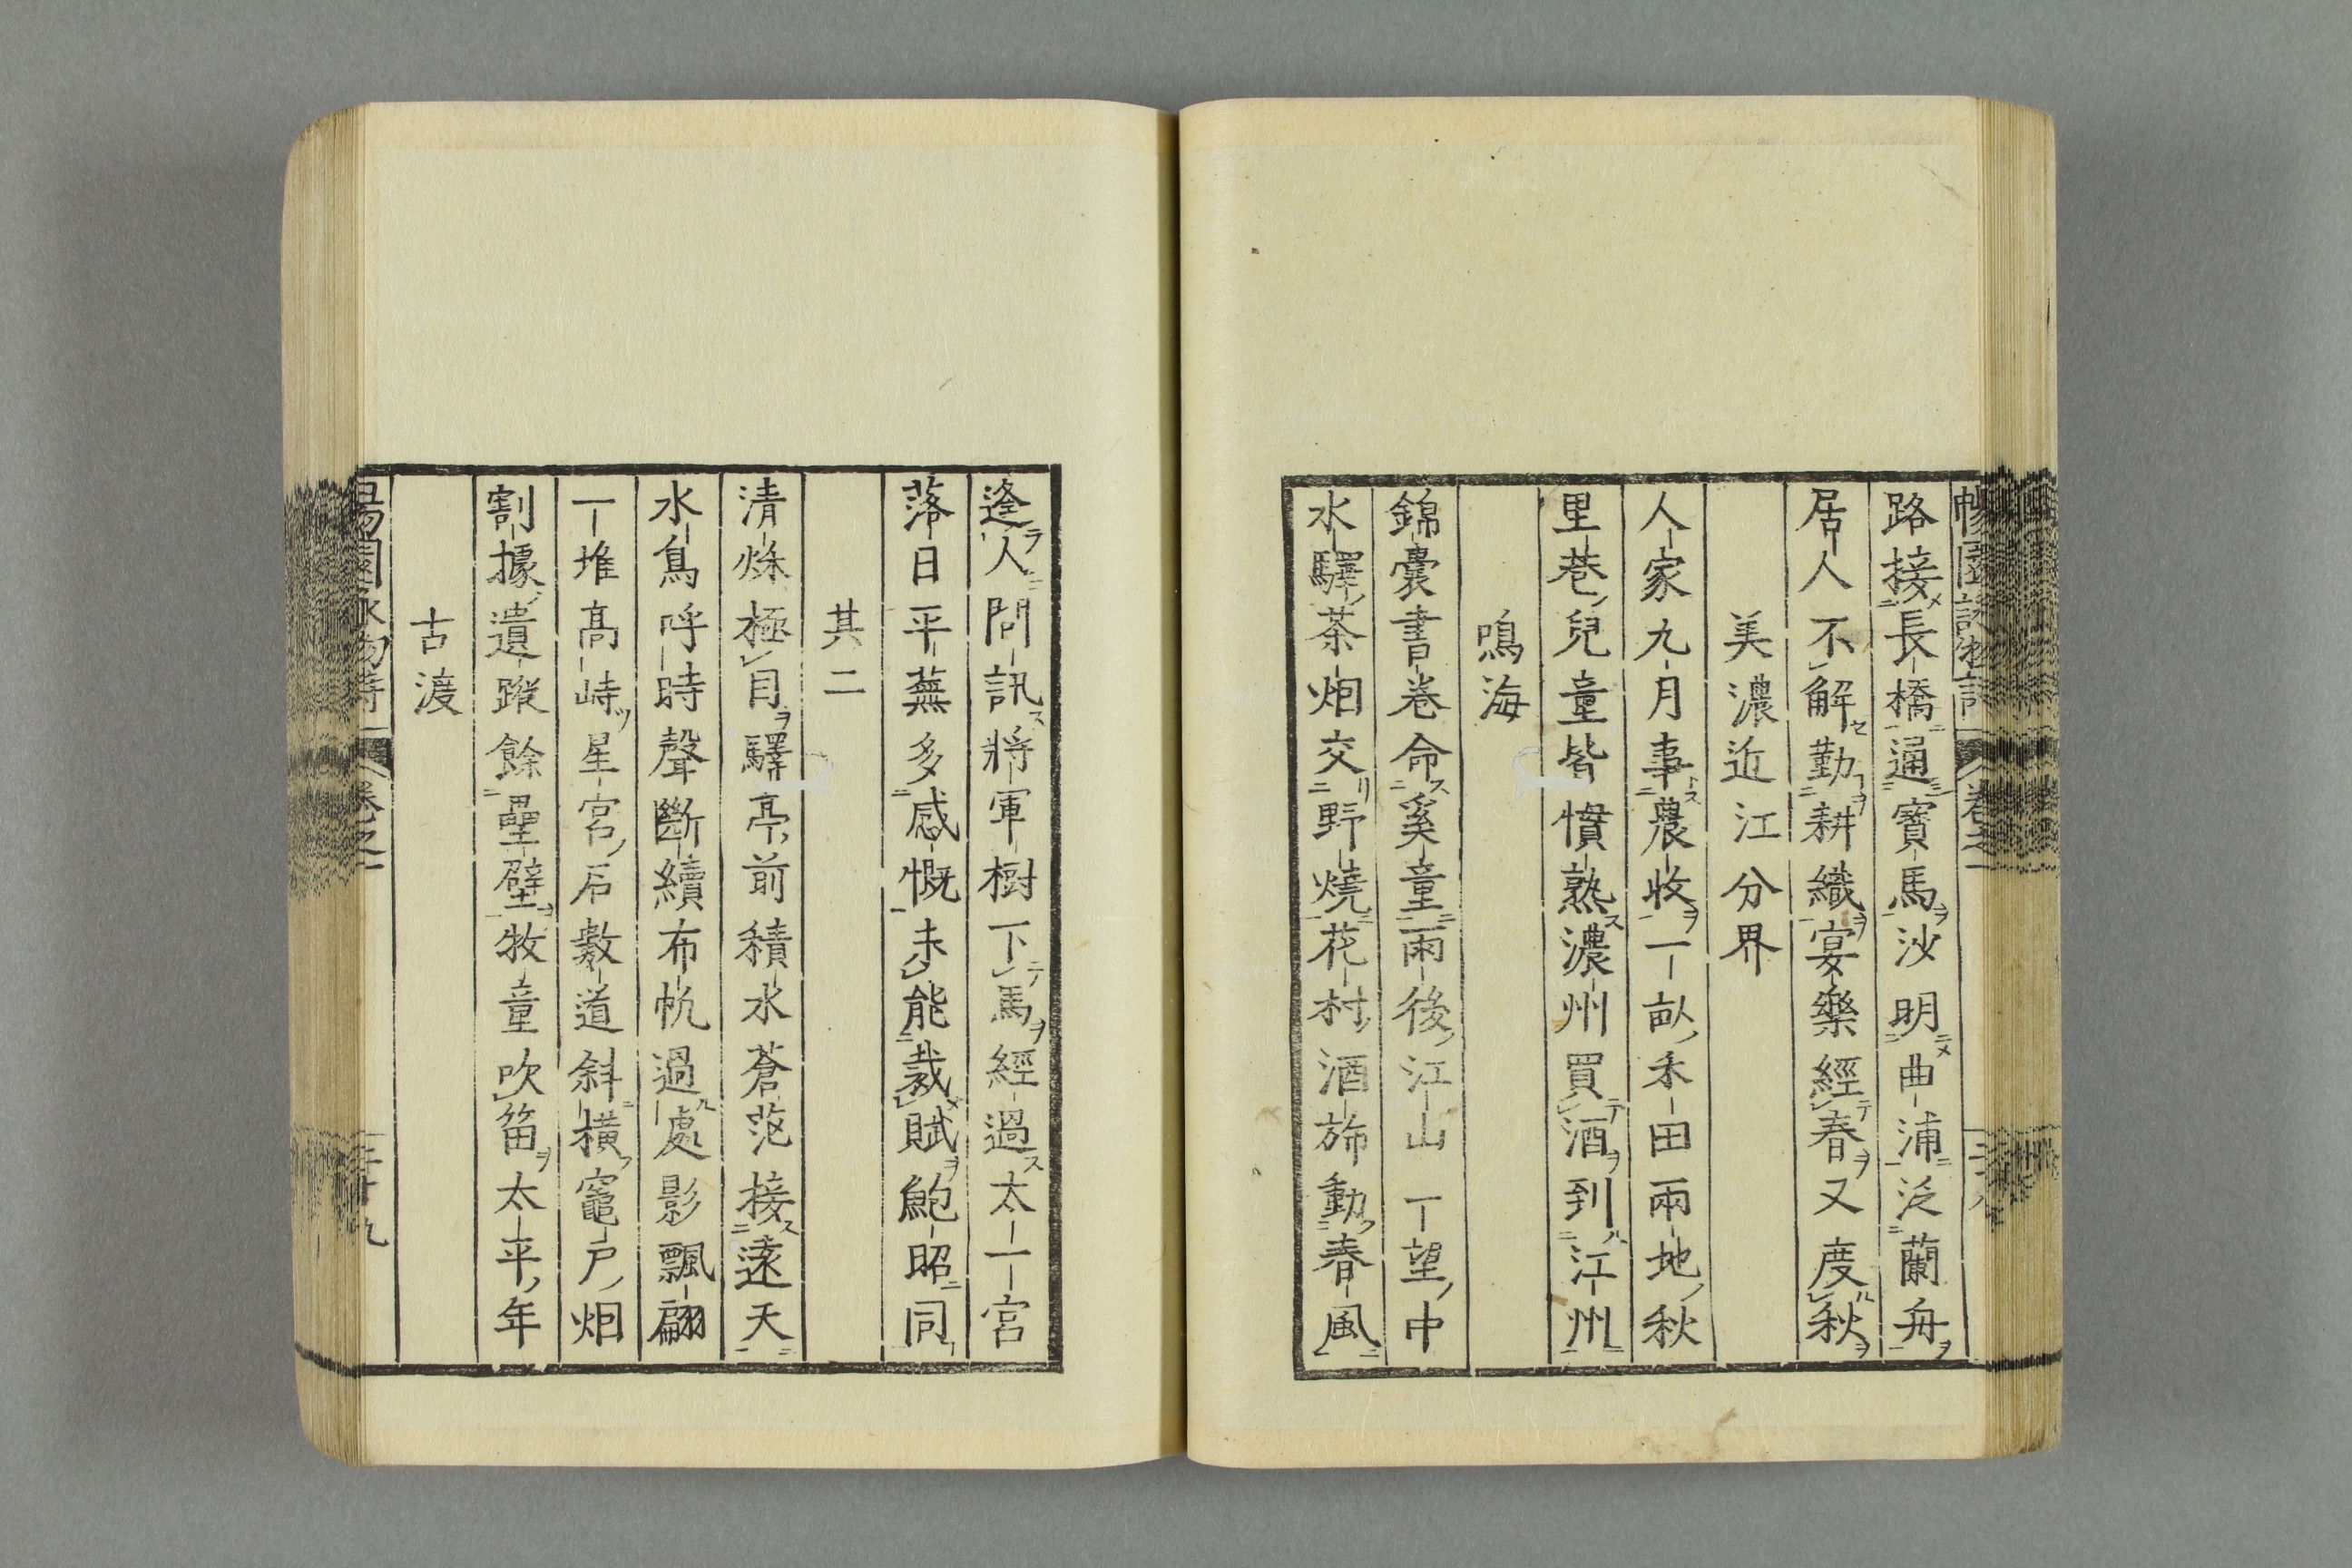 路接長橋通寳馬沙明曲浦泛蘭舟
居人不解勤耕織宴樂經春又度秋
美濃近江分界
人家九月事農收一畝禾田兩地秋
里巷兒童皆慣熟濃州買酒到江州
鳴海
錦囊書卷命奚童雨後江山一望中
水驛茶烟交野燒花村酒旆動春風
逢人問訊將軍樹下馬經過太一宮
落日平蕪多感慨未能裁賦鮑昭同
其二
清烁極目驛亭前積水蒼茫接遠天
水鳥呼時聲斷續布帆過處影飄翩
一堆高峙星宮石數道斜横竈户烟
割據遺蹤餘壘壁牧童吹笛太平年
古渡
卷之一
三十九